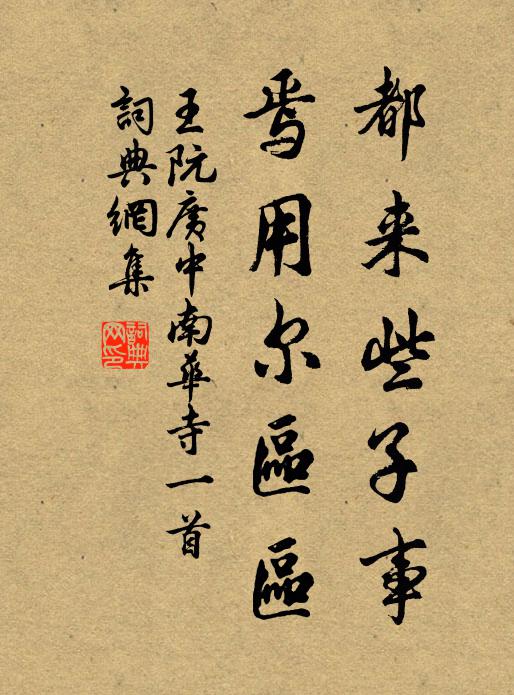 都来些子事
焉用尔區區
王阮廣中南華寺一首
詞典網集
詞典网印